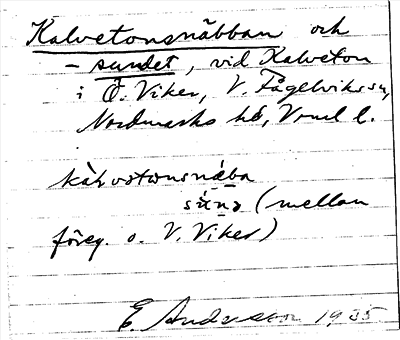 Kalvetonsnäbban och
- sundet, vid Kalveton
i Ö. Viker, V. Fågelvikssn,
Nordmarks hd, Vrml l.
kàlvotonsnäba
sún̥ə (mellan
föreg. o. V. Viker)
E. Andersson 1935